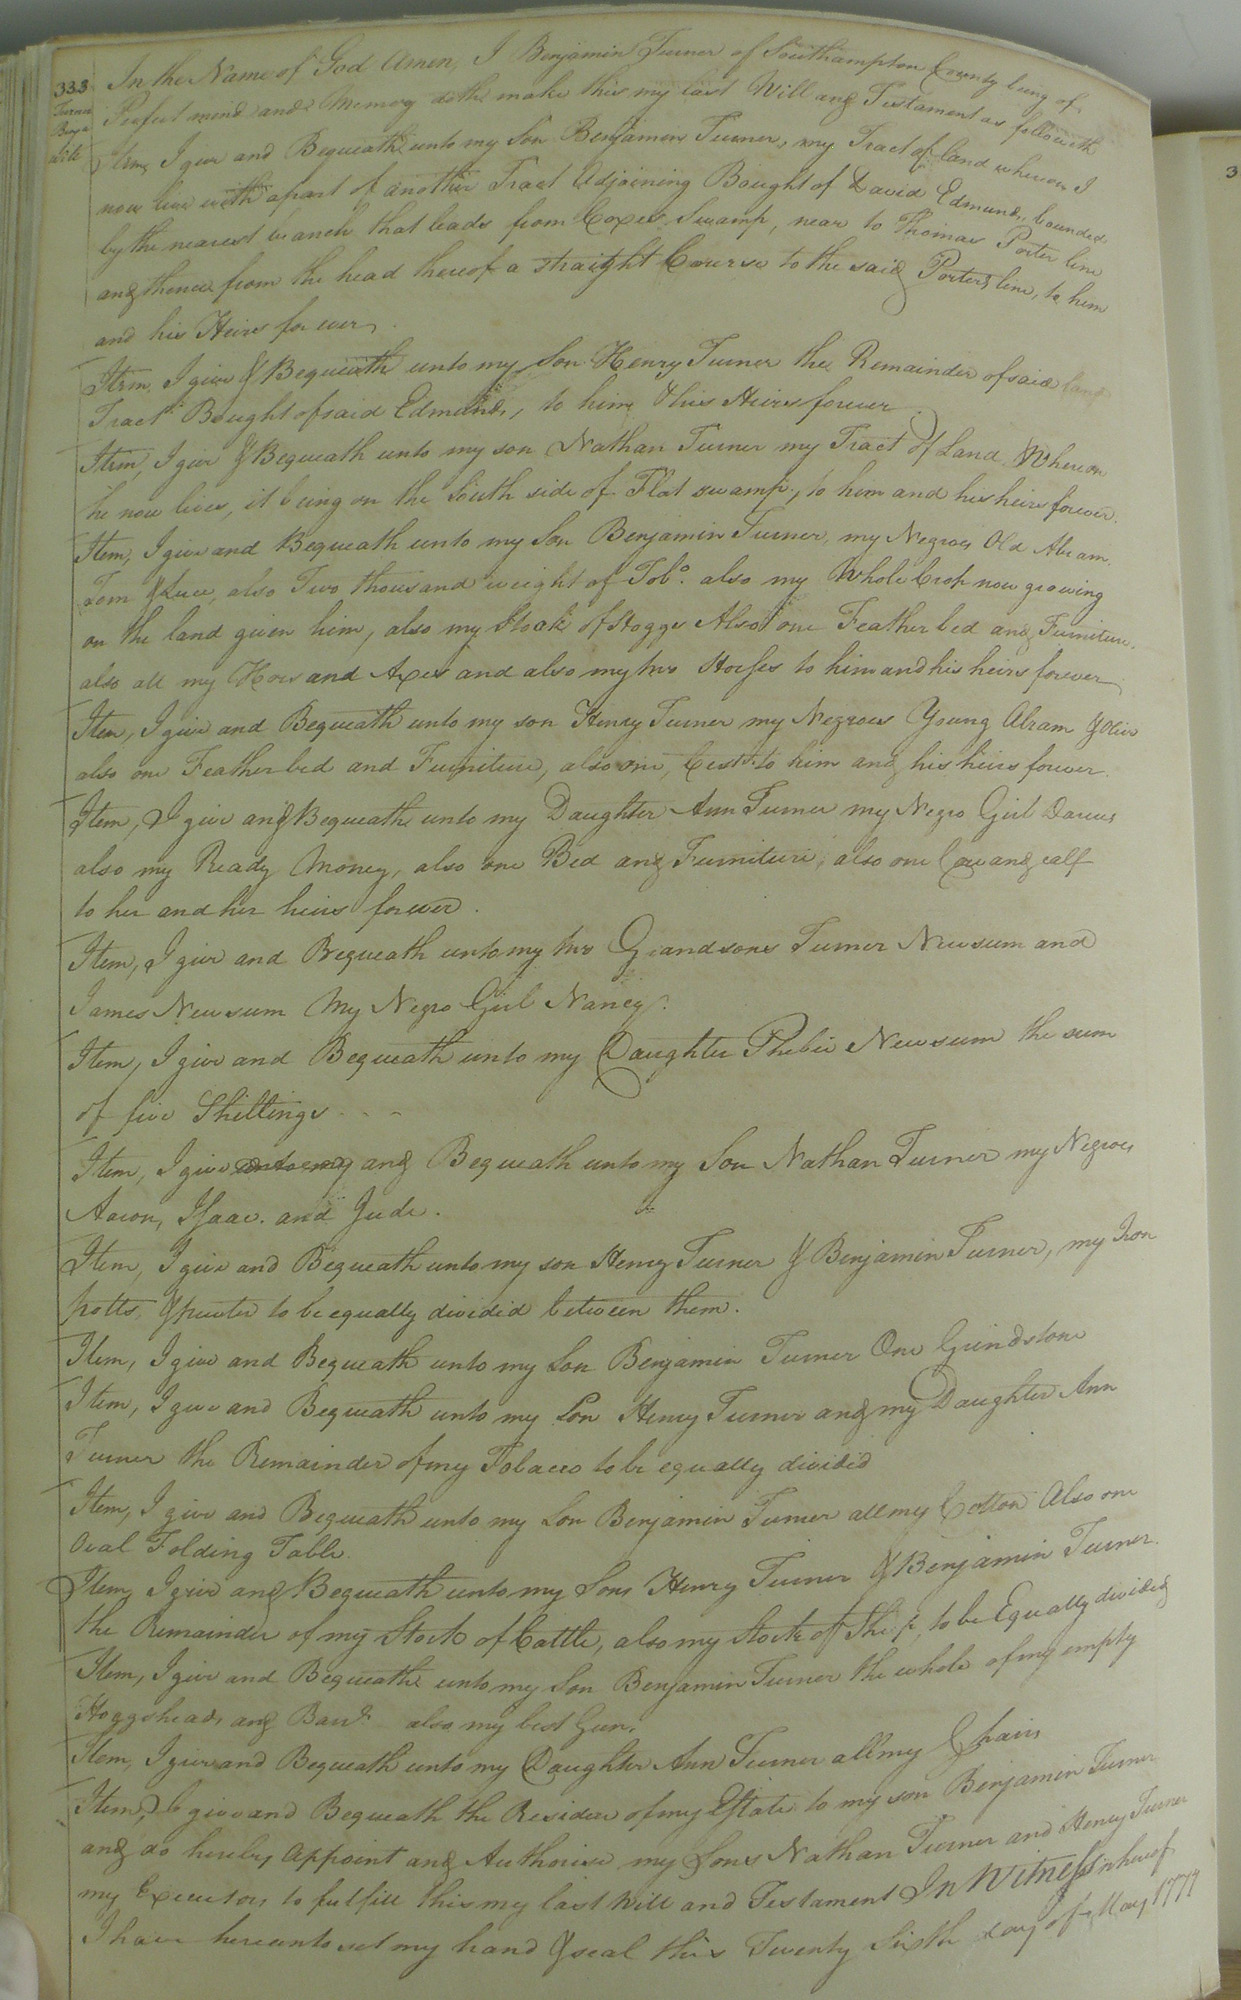 333
Turner
Benja
In the Name of God Amen, I Benjamin Turner of Southampton County being of
Perfect mind and Memory doth make this my last Will and Testament as followeth
Item, I give and Bequeath unto my Son Benjamin Turner, my Tract of land whereon I
now live with apart of another Tract Adjoining Bought of David Edmunds, bounded
by the nearest branch that leads from Coxes Swamp, near to Thomas Porter line
and thence from the head thereof a straight Course to the said Porters line, to him
and his Heirs for ever.
Item, I give & Bequeath unto my Son Henry Turner the Remainder of said land
Tract Bought of said Edmunds, to him & his Heirs forever
Item, I give & Bequeath unto my son Nathan Turner my Tract of Land Whereon
he now lives, it being on the South side of Flat swamp, to him and his heirs forever.
Item, I give and Bequeath unto my Son Benjamin Turner, my Negroes Old Abram,
Tom & Luce, also Two thousand weight of Tobo. also my Whole Crop now growing
on the land given him, also my Stock of Hoggs Also one Featherbed and Furniture,
also all my Hoes and Axes and also my two Horses to him and his heirs forever
Item, I give and Bequeath unto my son Henry Turner my Negroes Young Abram &
also one Featherbed and Furniture, also one, to him and his heirs forever.
Item, I give and Bequeath unto my Daughter Ann Turner my Negro Girl
also my Ready Money, also one Bed and Furniture, also one Cow and calf
to her and her heirs forever.
Item, I give and Bequeath unto my two Grandsons Turner Newsum and
James Newsum My Negro Girl Nancy.
Item, I give and Bequeath unto my Daughter Phebie Newsum the sum
of five Shillings - - -
Item, I give and Bequeath unto my Son Nathan Turner my Negroes
Aaron, Isaac. and Jude.
Item, I give and Bequeath unto my son Henry Turner & Benjamin Turner, my Iron
potts, & pewter to be equally divided between them.
Item, I give and Bequeath unto my Son Benjamin Turner One Grindstone
Item, I give and Bequeath unto my Son Henry Turner and my Daughter Ann
Turner the Remainder of my Tobacco to be equally divided
Item, I give and Bequeath unto my Son Benjamin Turner all my Cotton Also one
Oval Folding Table.
Item, I give and Bequeath unto my Sons Henry Turner & Benjamin Turner.
the Remainder of my Stock of Cattle, also my Stock of Sheep, to be Equally divided
Item, I give and Bequeath unto my Son Benjamin Turner the whole of my empty
Hoggsheads and also my best Gun.
Item, I give and Bequeath unto my Daughter Ann Turner all my Chairs
Item, I give and Bequeath the Residue of my Estate to my son Benjamin Turner
and do hereby Appoint and Authorise my Sons Nathan Turner and Henry Turner
my Executors to fulfill this my last Will and Testament In Witness whereof
I have hereunto set my hand & seal this Twenty Sixth day of May 1777